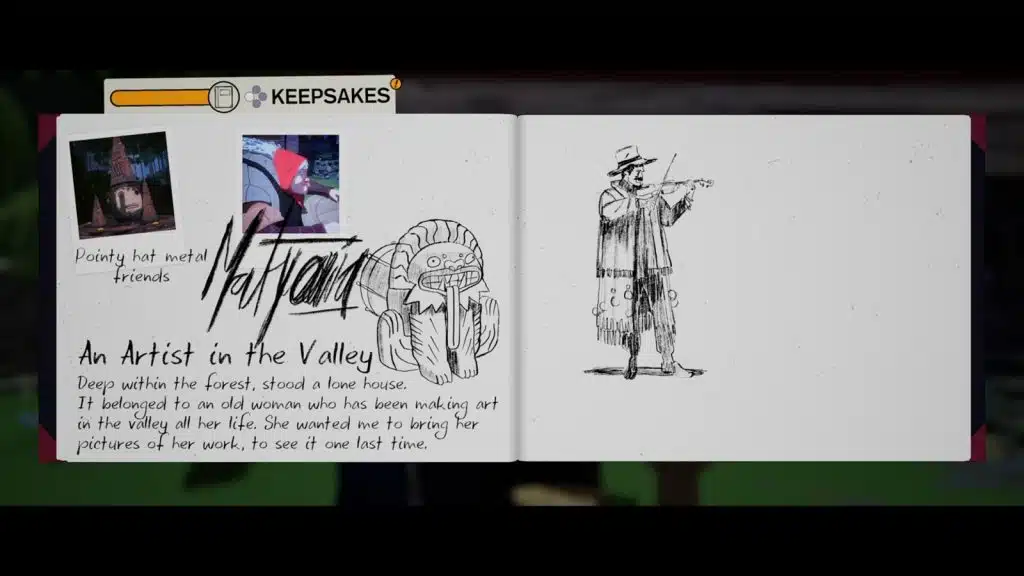 KEEPSAKES
Pointy hat metal
friends
An Artist in the Valley
Deep within the forest, stood a lone house.
It belonged to an old woman who has been making art
in the valley all her life. She wanted me to bring her
pictures of her work, to see it one last time.